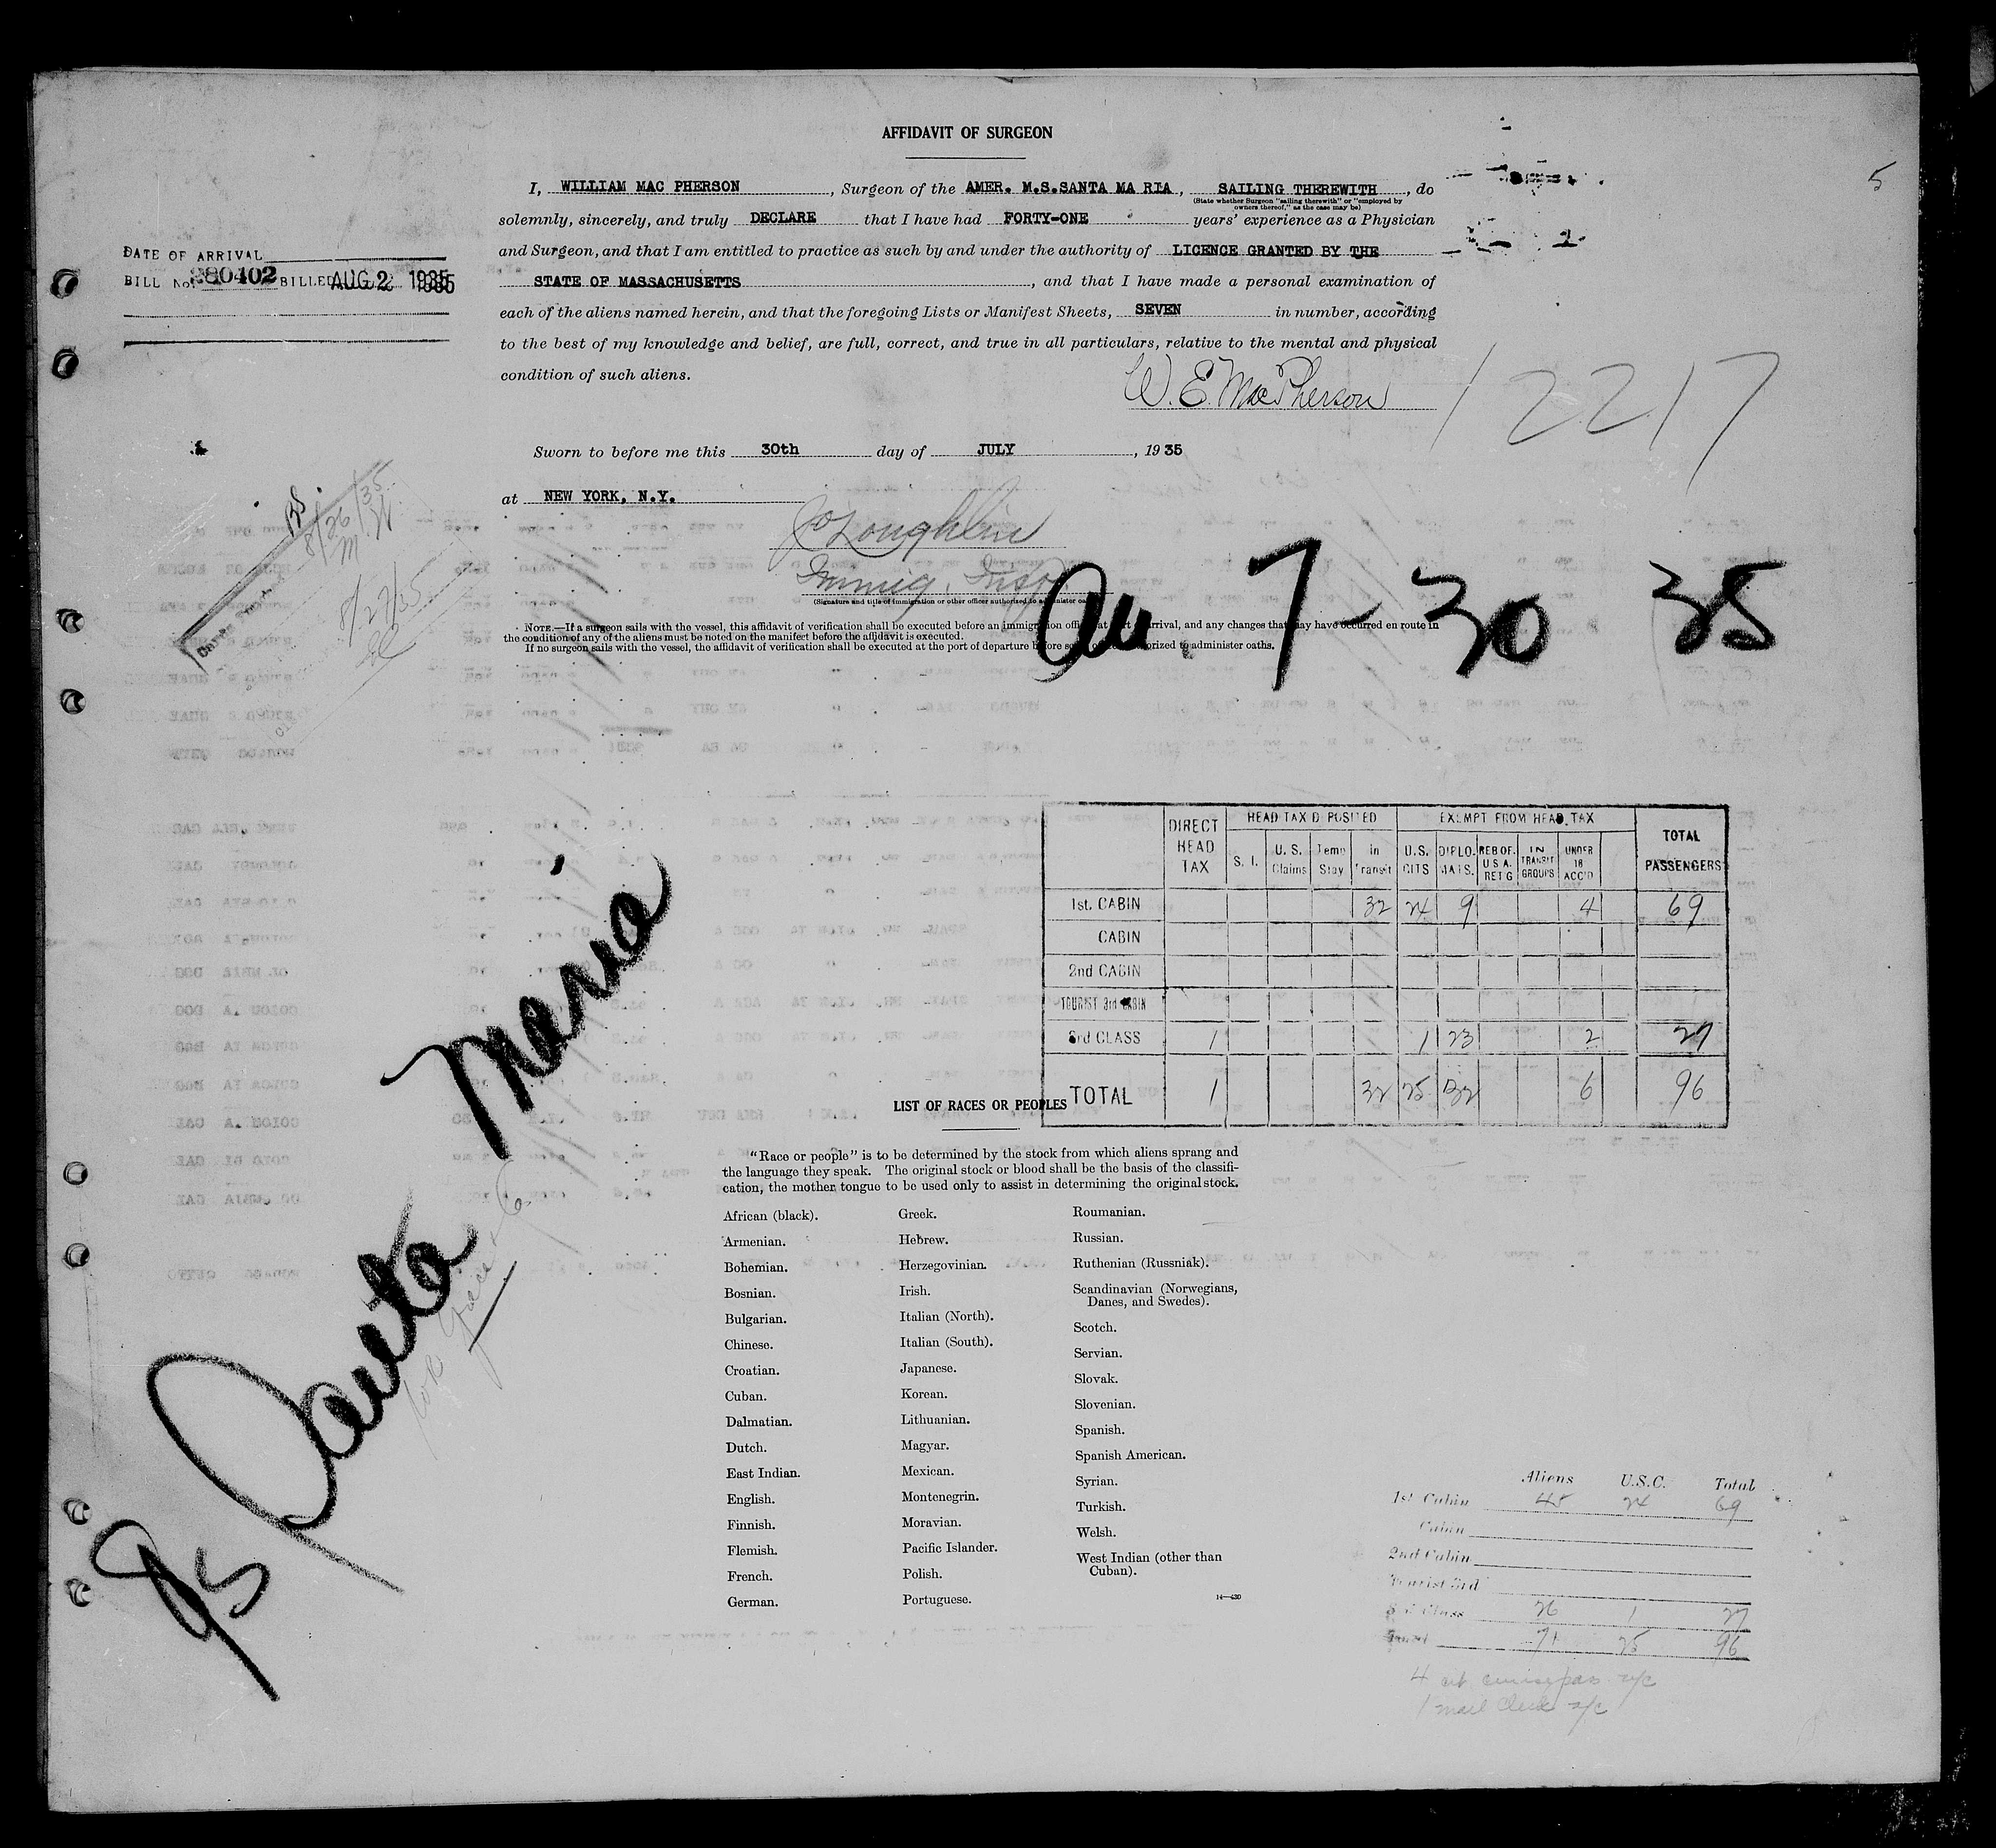 AFFIDAVIT OF SURGEON
5
I, WILLIAM MAC PHERSON, Surgeon of the AMER. M.S.SANTA MA RIA, SAILING THEREWITH, do
(State whether Surgeon "sailing therewith" or "employed by
owners thereof," as the case may be)
solemnly, sincerely, and truly DECLARE that I have had FORTY-ONE years' experience as a Physician
and Surgeon, and that I am entitled to practice as such by and under the authority of LICENCE GRANTED BY THE
STATE OF MASSACHUSETTS, and that I have made a personal examination of
each of the aliens named herein, and that the foregoing Lists or Manifest Sheets, SEVEN in number, according
to the best of my knowledge and belief, are full, correct, and true in all particulars, relative to the mental and physical
condition of such aliens.
DATE OF ARRIVAL
BILL No. 280402 BILLED AUG 2 1935
W. E. MacPherson
12217
Sworn to before me this 30th day of JULY, 1935
at NEW YORK, N.Y.
J O'Loughlin
Immig. Insp
(Signature and title of immigration or other officer authorized to administer oaths)
8/26/35
8/27/35
7-30 35
NOTE.—If a surgeon sails with the vessel, this affidavit of verification shall be executed before an immigration officer at port of arrival, and any changes that may have occurred en route in
the condition of any of the aliens must be noted on the manifest before the affidavit is executed.
If no surgeon sails with the vessel, the affidavit of verification shall be executed at the port of departure before some officer authorized to administer oaths.
DIRECT HEAD TAX
HEAD TAX D POSITED
EXEMPT FROM HEAD TAX
TOTAL PASSENGERS
S. I. U. S. Claims Temp Stay In Transit U.S. CITS DIPLO. MATS. REB OF. U S A. RET'G IN TRANSIT GROUPS UNDER 16 ACC'D
1st. CABIN 32 24 9 4 69
CABIN
2nd CABIN
TOURIST 3rd CABIN
3rd CLASS 1 1 23 2 27
TOTAL 1 32 25 32 6 96
Santa Maria
LIST OF RACES OR PEOPLES
"Race or people" is to be determined by the stock from which aliens sprang and
the language they speak. The original stock or blood shall be the basis of the classifi-
cation, the mother tongue to be used only to assist in determining the original stock.
African (black).
Armenian.
Bohemian.
Bosnian.
Bulgarian.
Chinese.
Croatian.
Cuban.
Dalmatian.
Dutch.
East Indian.
English.
Finnish.
Flemish.
French.
German.
Greek.
Hebrew.
Herzegovinian.
Irish.
Italian (North).
Italian (South).
Japanese.
Korean.
Lithuanian.
Magyar.
Mexican.
Montenegrin.
Moravian.
Pacific Islander.
Polish.
Portuguese.
Roumanian.
Russian.
Ruthenian (Russniak).
Scandinavian (Norwegians,
Danes, and Swedes).
Scotch.
Servian.
Slovak.
Slovenian.
Spanish.
Spanish American.
Syrian.
Turkish.
Welsh.
West Indian (other than
Cuban).
14—430
Aliens U.S.C. Total
1st Cabin 45 24 69
Cabin
2nd Cabin
Tourist 3rd
3rd Class 26 1 27
71 25 96
1 mail Clerk